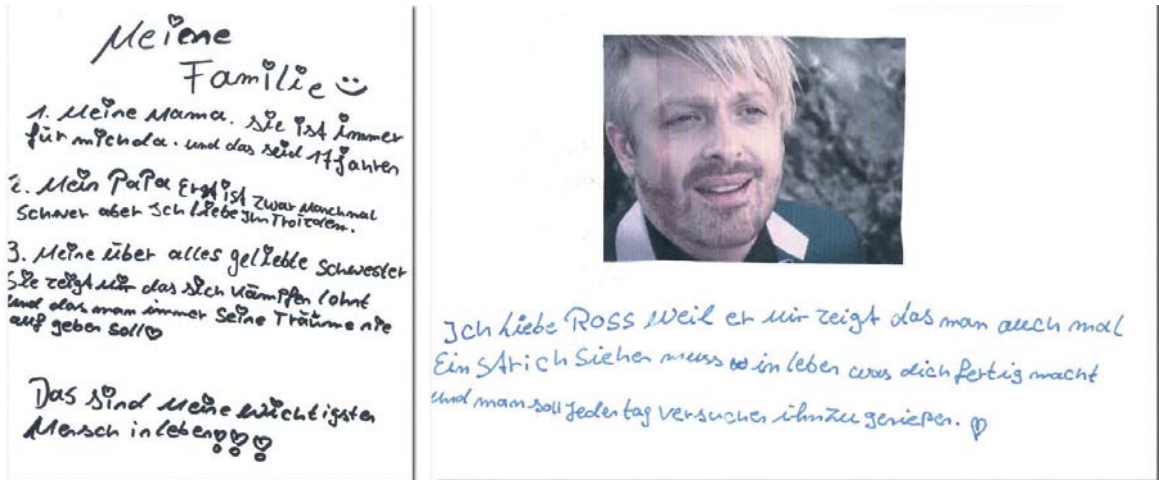 Meiene
Familie
1. Meine Mama. Sie ist immer
für mich da. und das seid 17 Jahren
2. Mein PaPa Er ist zwar Manchmal
Schwer aber Ich Liebe Ihn Trotzdem.
3. Meine über alles geliebte Schwester
Sie zeigt mir das sich kämpfen lohnt
und das man immer Seine Träume nie
auf geben soll♡
Das sind Meine wichtigsten
Mensch in leben
Ich Liebe ROSS weil er mir zeigt das man auch mal
Ein Strich Siehen muss in leben was dich fertig macht
und man soll Jeden tag versuchen ihn zu genießen. ♡